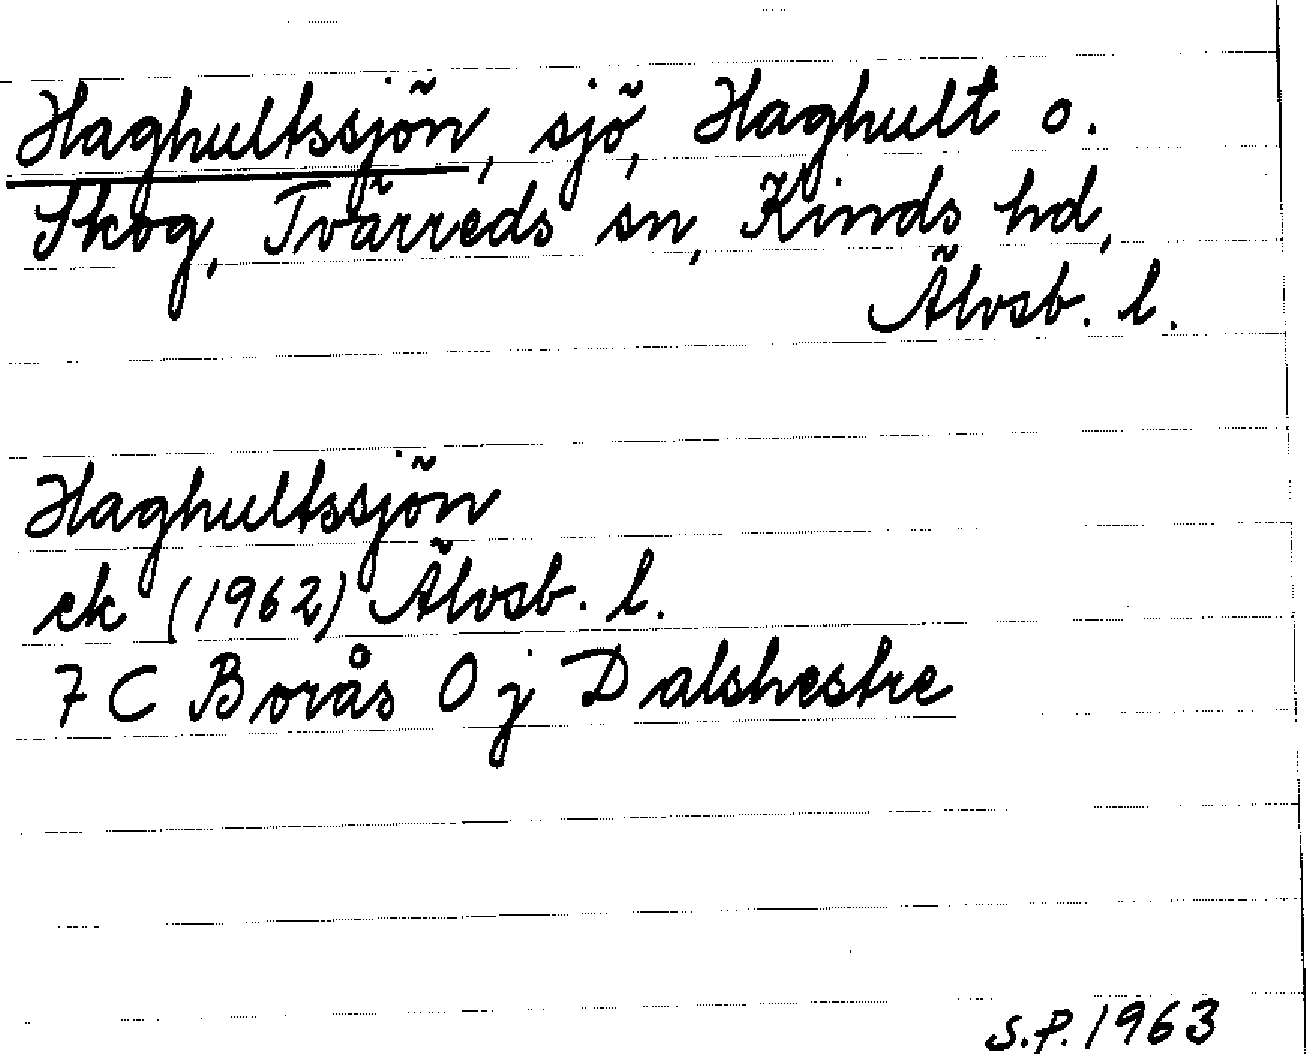 Haghultssjön, sjö, Haghult o.
Skog, Tvärreds sn, Kinds hd,
Älvsb. l.
Haghultssjön
ek (1962) Älvsb. l.
7 C Borås 0 j Dalshestre
S.P. 1963